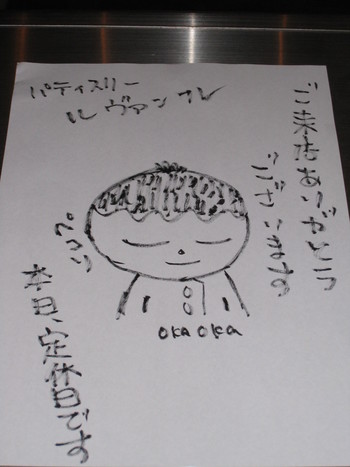 パティスリー
ル ヴァン
ご来店ありがとう
ございます。
本日定休日です
OKA OKA